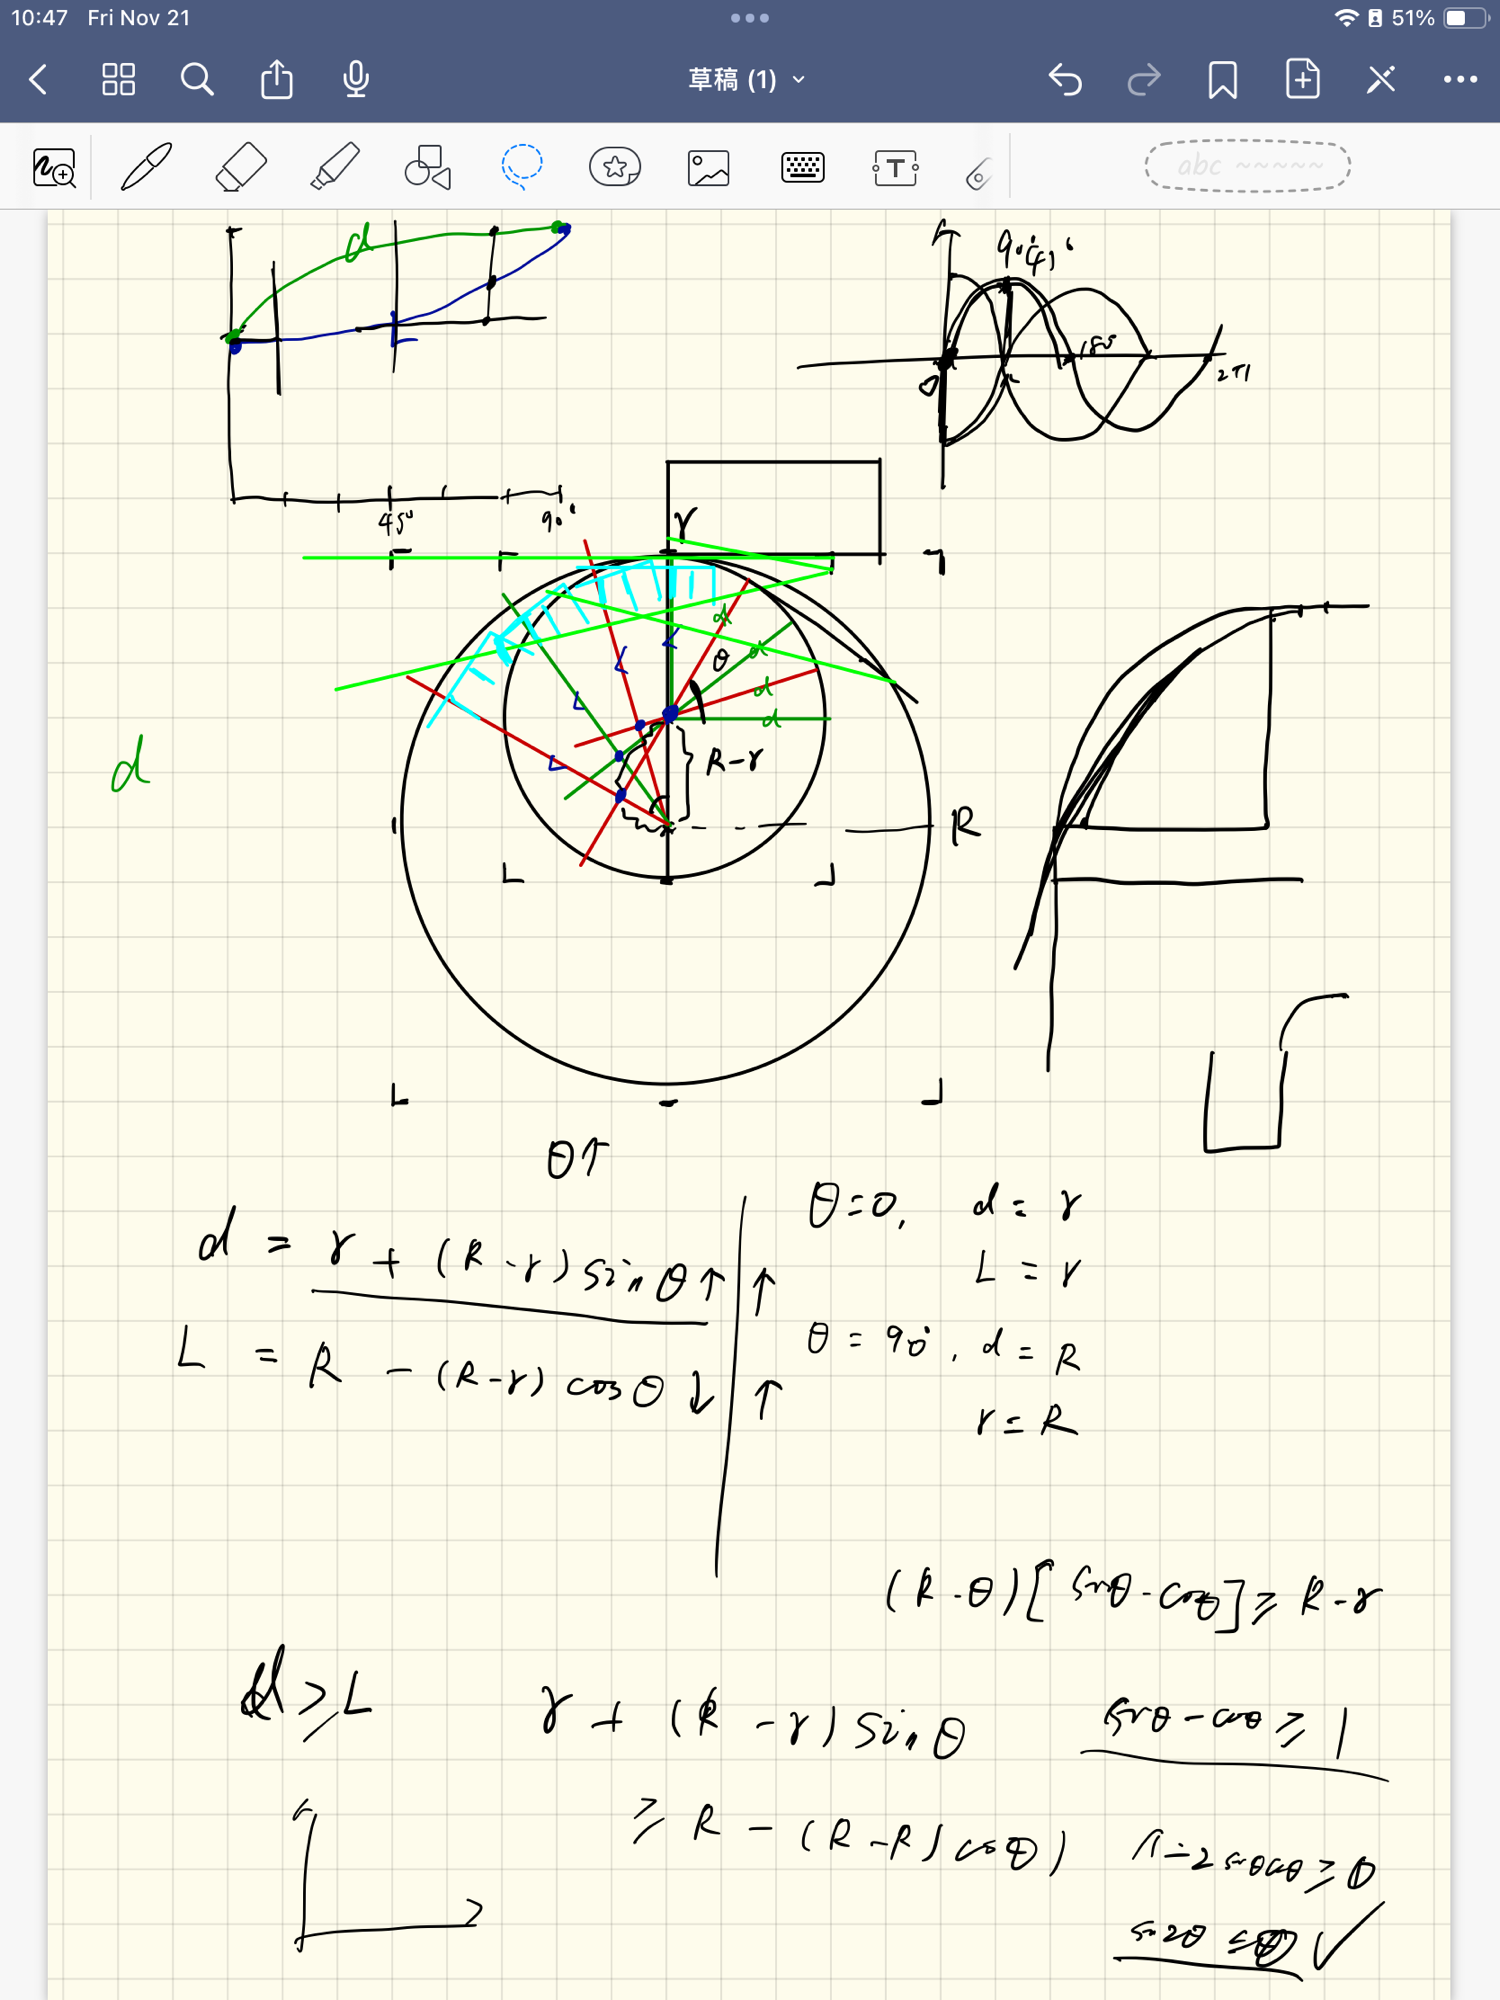 10:47 Fri Nov 21
51%
草稿 (1)
T
abc
d
90°
45°
90°
0
180°
2π
r
d
θ
d
d
d
L
L
L
L
R-r
R
d
θ↑
d = r + (R-r) sinθ↑ ↑
L = R - (R-r) cosθ↓ ↑
θ=0, d=r
L=r
θ=90°, d=R
r=R
(R-θ)[sinθ-cosθ]≥R-r
d≥L
r+(R-r)sinθ
≥R-(R-R)cosθ)
sinθ-cosθ≥1
1-2sinθcosθ≥0